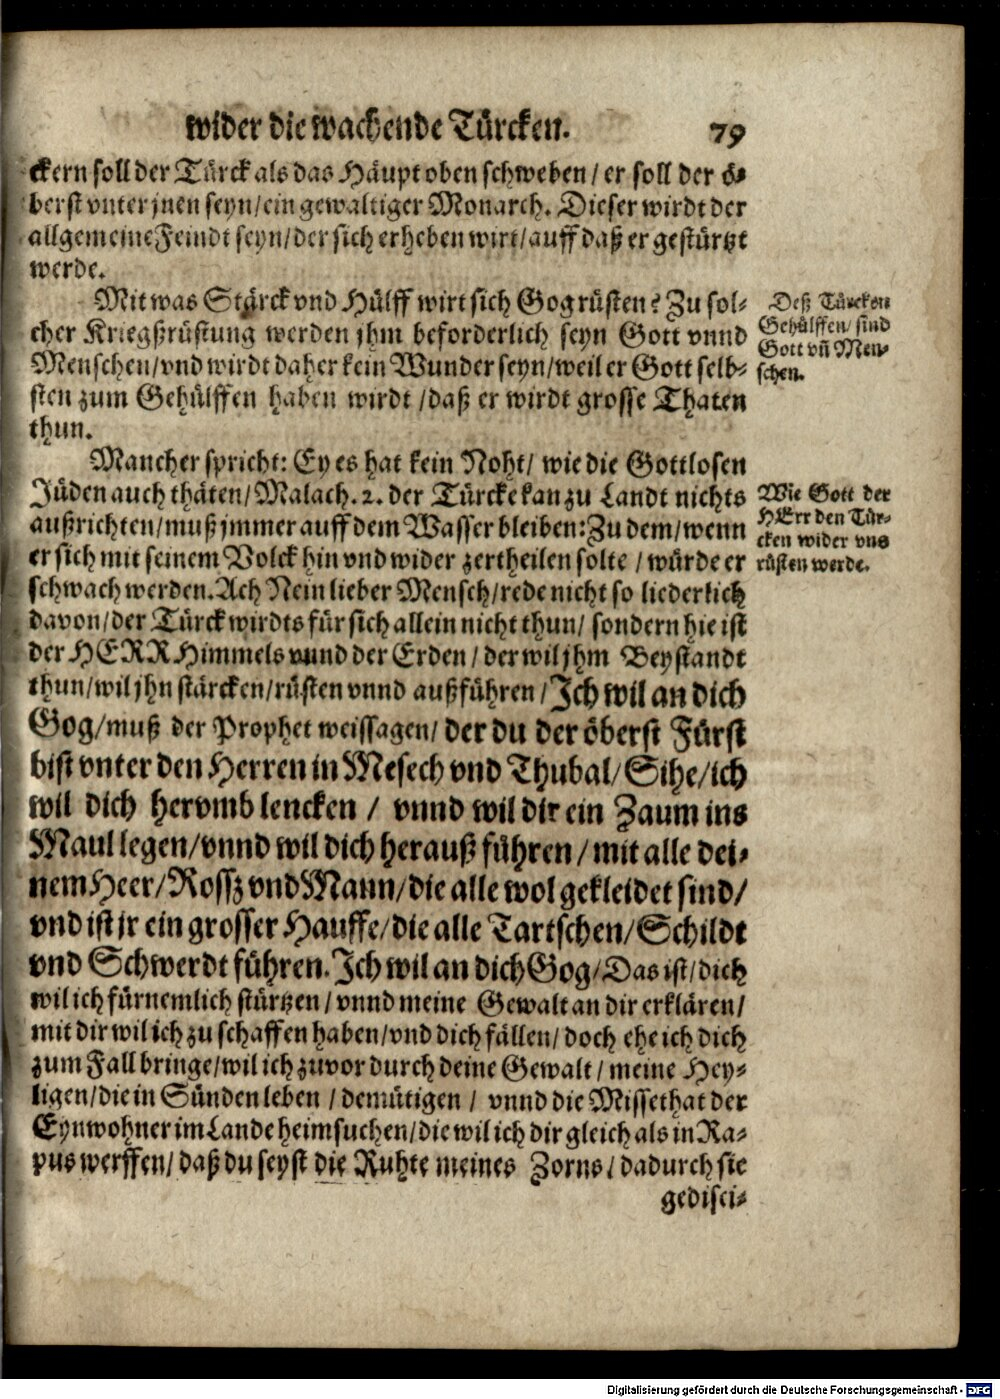 wider die wachende Türcken. 79
ckern soll der Türck als das Häupt oben schweben / er soll der ö-
berst vnter jnen seyn / ein gewaltiger Monarch. Dieser wirdt der
allgemeine Feindt seyn / der sich erheben wirt / auff daß er gestürtzt
werde.
Mit was Stärck vnd Hülff wirt sich Gog rüsten? Zu sol-
cher Kriegßrüstung werden jhm beforderlich seyn Gott vnnd
Menschen / vnd wirdt daher kein Wunder seyn / weil er Gott selb-
sten zum Gehülffen haben wirdt / daß er wirdt grosse Thaten
thun.
Deß Türcken
Gehülffen / sind
Gott vñ Men-
schen.
Mancher spricht: Ey es hat kein Noht / wie die Gottlosen
Jüden auch thäten / Malach. 2. der Türcke kan zu Landt nichts
außrichten / muß jmmer auff dem Wasser bleiben: Zu dem / wenn
er sich mit seinem Volck hin vnd wider zertheilen solte / würde er
schwach werden. Ach Nein lieber Mensch / rede nicht so liederlich
davon / der Türck wirdts für sich allein nicht thun / sondern hie ist
der HERR Himmels vnnd der Erden / der wil jhm Beystandt
thun / wil jhn stärcken / rüsten vnnd außführen / Ich wil an dich
Gog / muß der Prophet weissagen / der du der öberst Fürst
bist vnter den Herren in Mesech vnd Thubal / Sihe / ich
wil dich hervmb lencken / vnnd wil dir ein Zaum ins
Maul legen / vnnd wil dich herauß führen / mit alle dei-
nem Heer / Rossz vnd Mann / die alle wol gekleidet sind /
vnd ist jr ein grosser Hauffe / die alle Tartschen / Schildt
vnd Schwerdt führen. Ich wil an dich Gog / Das ist / dich
wil ich fürnemlich stürtzen / vnnd meine Gewalt an dir erklären /
mit dir wil ich zu schaffen haben / vnd dich fällen / doch ehe ich dich
zum Fall bringe / wil ich zuvor durch deine Gewalt / meine Hey-
ligen / die in Sünden leben / demütigen / vnnd die Missethat der
Eynwohner im Lande heimsuchen / die wil ich dir gleich als in Ra-
pus werffen / daß du seyst die Ruhte meines Zorns / dadurch sie
gedisci-
Wie Gott der
HErr den Tür-
cken wider vns
rüsten werde.
Digitalisierung gefördert durch die Deutsche Forschungsgemeinschaft - DFG